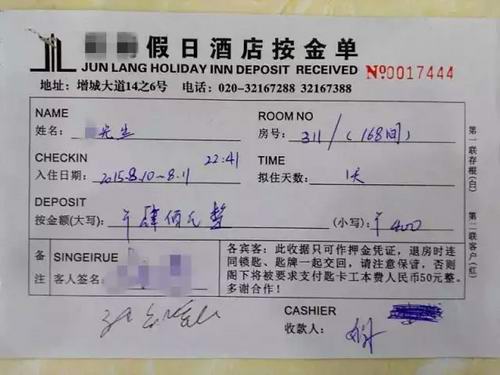 假日酒店按金单
JUN LANG HOLIDAY INN DEPOSIT RECEIVED №0017444
地址：增城大道14之6号 电话：020-32167288 32167388
NAME ROOM NO
姓名：先生 房号：311/（168间）
CHECKIN 22:41 TIME
入住日期：2015.8.10~8.11 拟住天数：1天
DEPOSIT
按金额(大写)：肆佰元整 (小写)：¥400
备注
SINGEIRUE
客人签名：
各宾客：此收据只可作押金凭证，退房时连
同锁匙、匙牌一起交回，请注意保管，否则
阁下将被要求支付匙卡工本费人民币50元整。
多谢合作！
CASHIER
收款人：
第一联存根（白）
第二联客户（红）